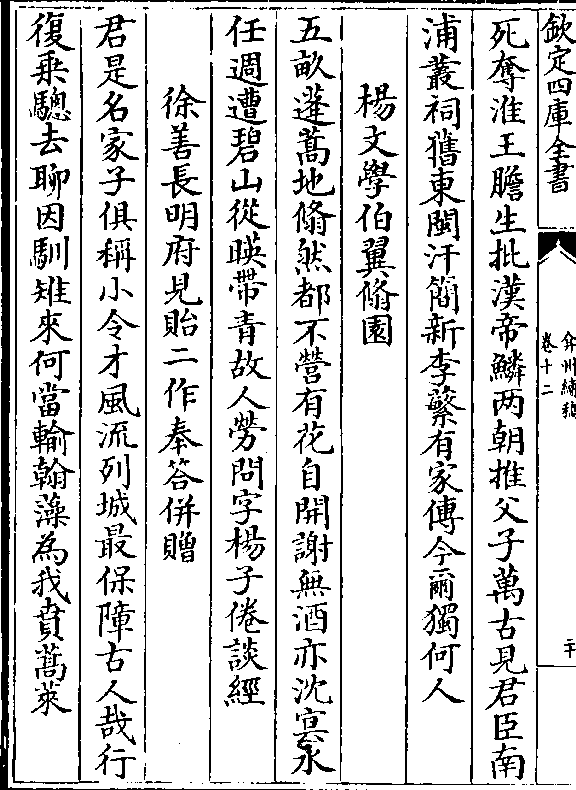 欽定四庫全書
弇州續稿
卷十二
二十
死奪淮王膽生批漢帝鱗两朝推父子萬古見君臣南
浦叢祠舊東閩汗簡新李蘩有家傳今爾獨何人
楊文學伯翼翛園
五畝蓬蒿地翛然都不營有花自開謝無酒亦沈㝠水
任週遭碧山從暎帶青故人勞問字楊子倦談經
徐善長明府見貽二作奉答併贈
君是名家子俱稱小令才風流列城最保障古人哉行
復乗驄去聊因馴雉來何當輸翰藻為我賁蒿萊